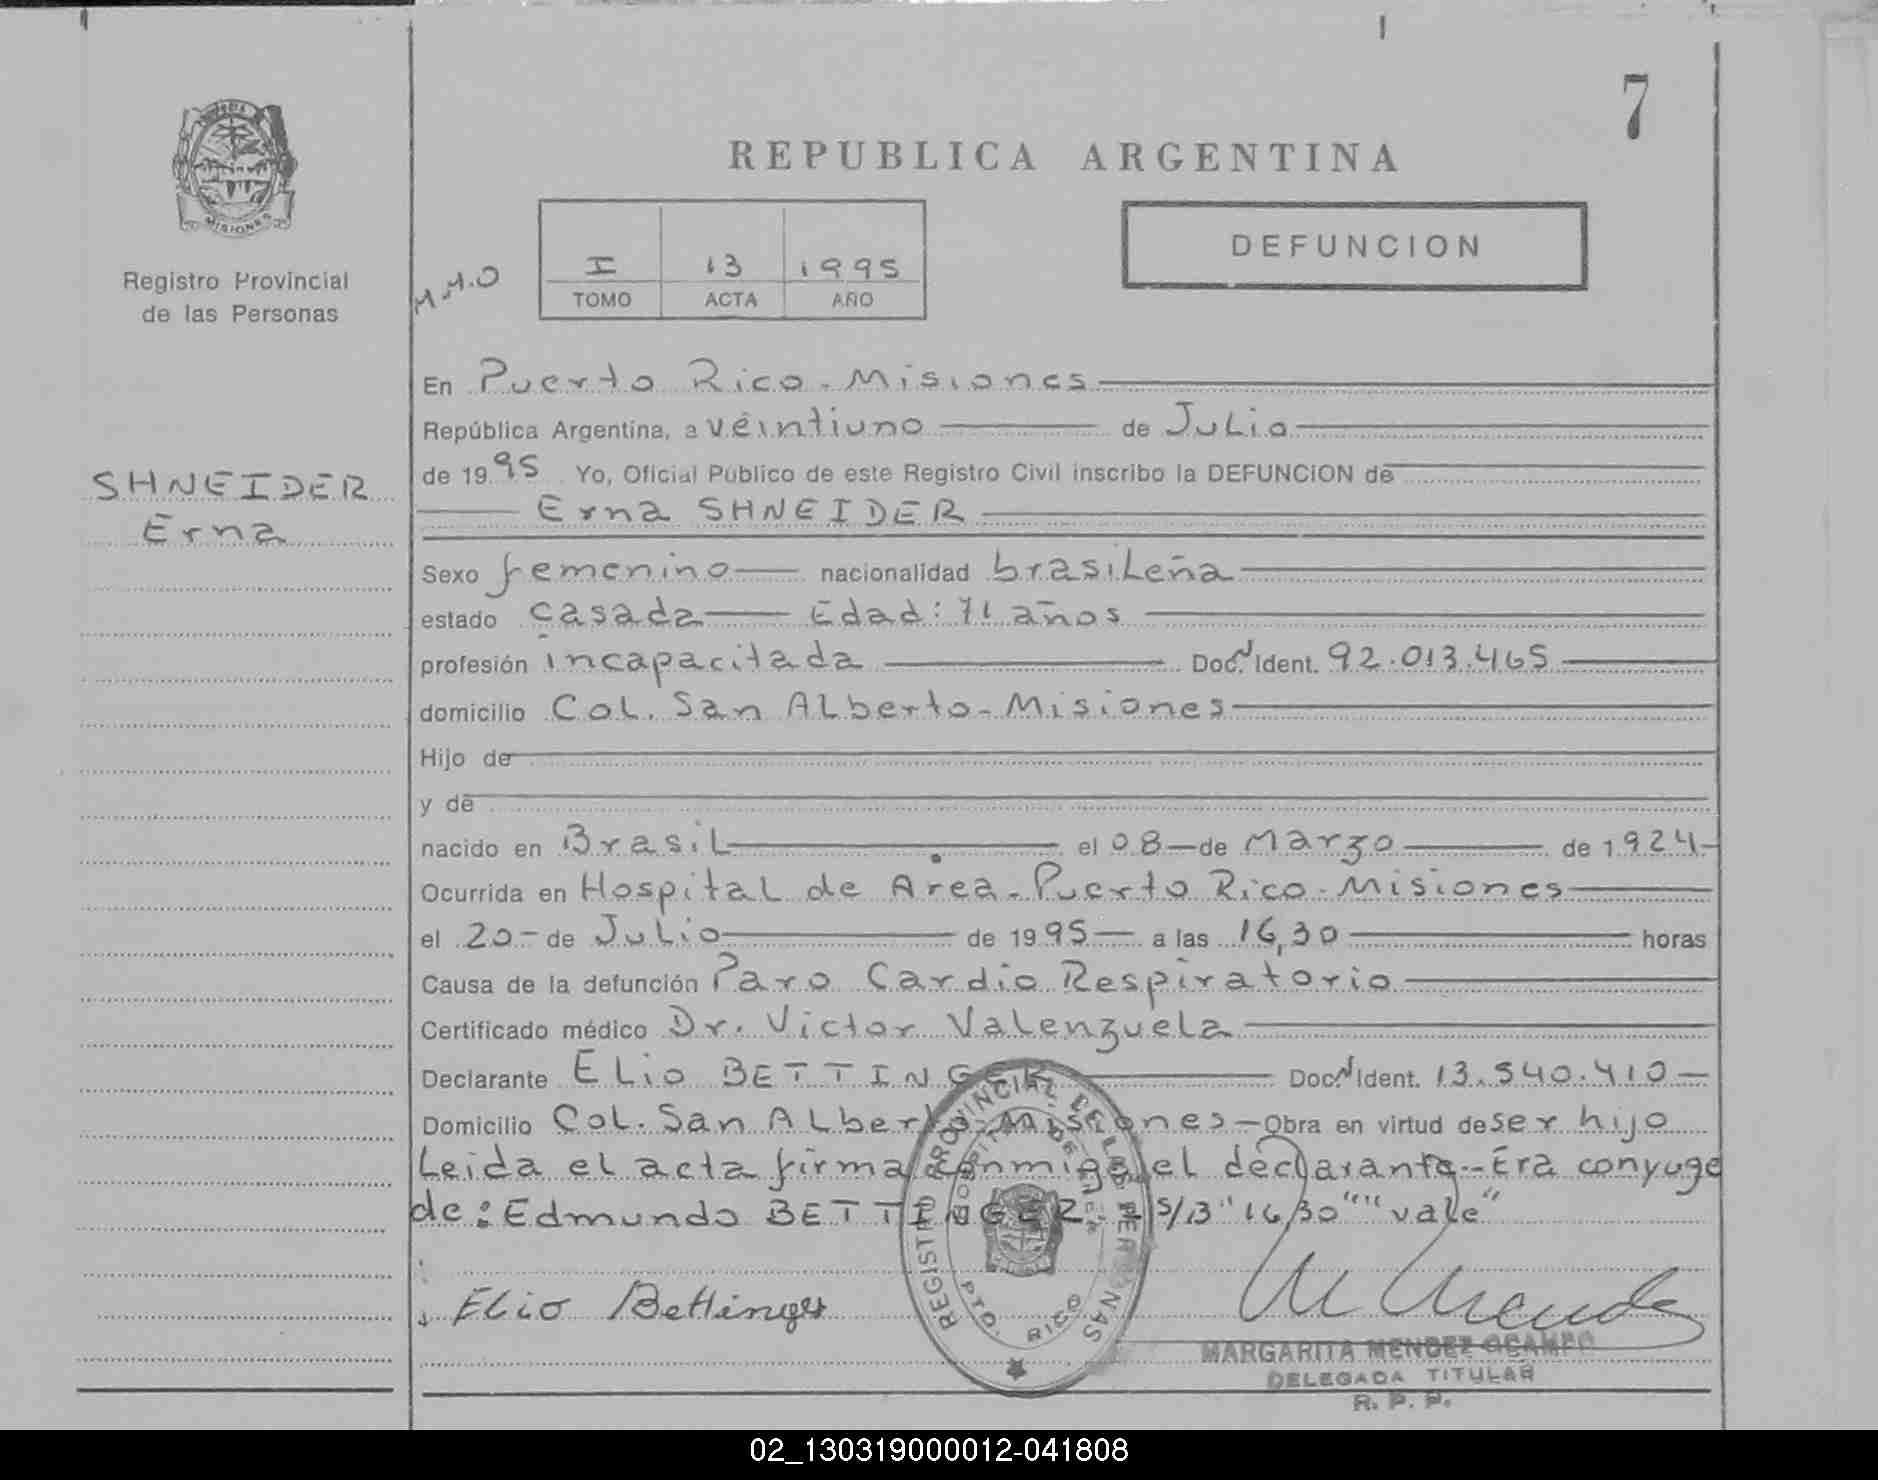 7
REPUBLICA ARGENTINA
MISIONES
Registro Provincial
de las Personas
M.M.O
I 13 1995
TOMO ACTA AÑO
DEFUNCION
SHNEIDER
Erna
En Puerto Rico - Misiones
República Argentina, a veintiuno de Julio
de 1995 Yo, Oficial Público de este Registro Civil inscribo la DEFUNCION de
Erna SHNEIDER
Sexo femenino nacionalidad brasileña
estado casada Edad: 71 años
profesión incapacitada Doc. N Ident. 92.013.465
domicilio Col. San Alberto - Misiones
Hijo de
y de
nacido en Brasil el 08 de Marzo de 1924
Ocurrida en Hospital de Area - Puerto Rico - Misiones
el 20 de Julio de 1995 a las 16,30 horas
Causa de la defunción Paro Cardio Respiratorio
Certificado médico Dr. Victor Valenzuela
Declarante Elio BETTINGER Doc. N Ident. 13.540.410
Domicilio Col. San Alberto - Misiones - Obra en virtud de ser hijo
Leida el acta firma conmigo el declarante - Era conyuge
de: Edmundo BETTINGER - S/B "16,30" "vale"
Elio Bettinger
REGISTRO PROVINCIAL DE LAS PERSONAS
PTO. RICO
MARGARITA MENDEZ OCAMPO
DELEGADA TITULAR
R. P. P.
02_130319000012-041808